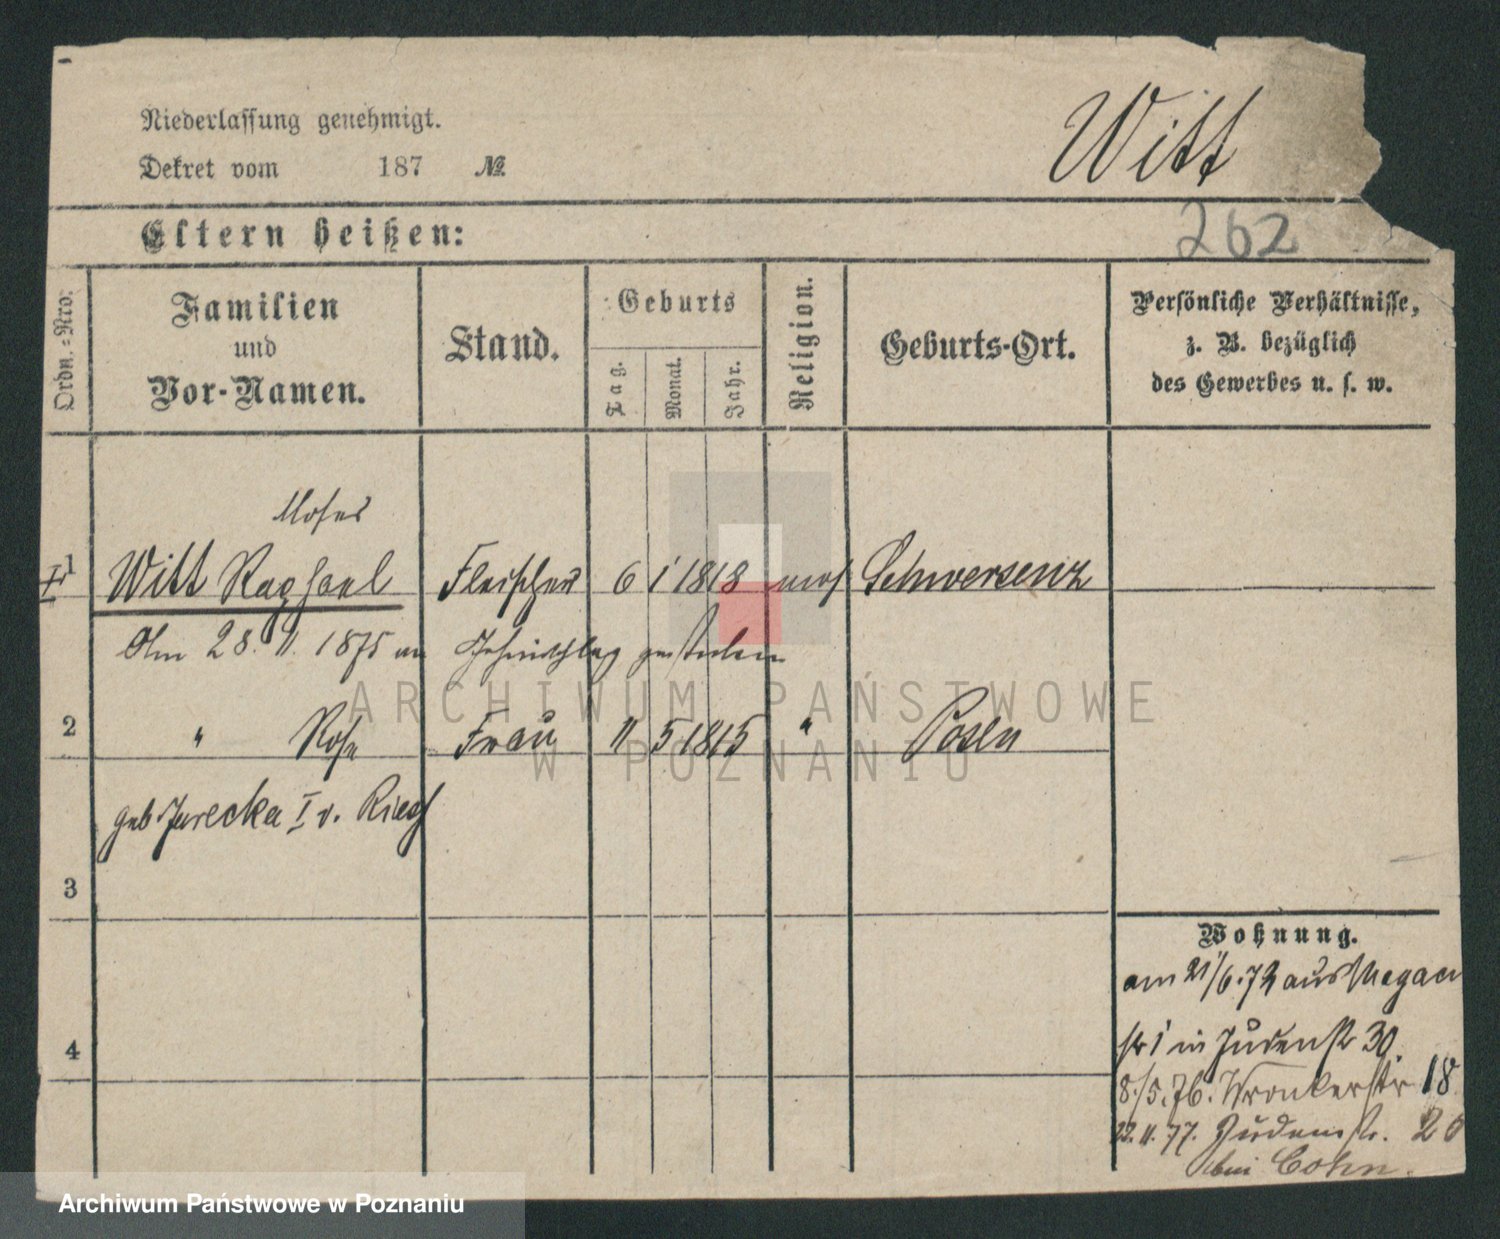 Niederlassung genehmigt.
Dekret vom 187 №
Witt
Eltern heißen:
262
Ordn.=Nro.
Familien
und
Vor-Namen.
Stand.
Geburts
Tag.
Monat.
Jahr.
Religion.
Geburts-Ort.
Persönliche Verhältnisse,
z. B. bezüglich
des Gewerbes u. s. w.
Moses
1 Witt Raphael Fleischer 6 1 1818 mos Schwersenz
Am 28. 11. 1875 an gestorben
2 " Rosa Frau 11 5 1815 " Posen
geb Jurecka I v.
3
4
Wohnung.
am 21/6.72 aus Magazin
str 1 in Judenstr 30
8./5.76. Wronkerstr 18
22.11.77. Judenstr. 20
bei Cohn.
ARCHIWUM PAŃSTWOWE
W POZNANIU
Archiwum Państwowe w Poznaniu